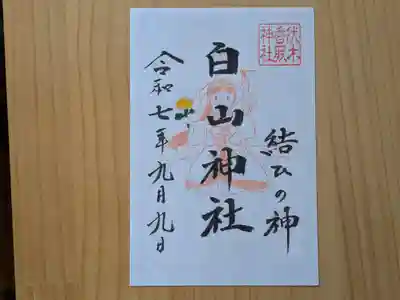 伏木
香取
神社
結びの神
白山神社
令和七年九月九日